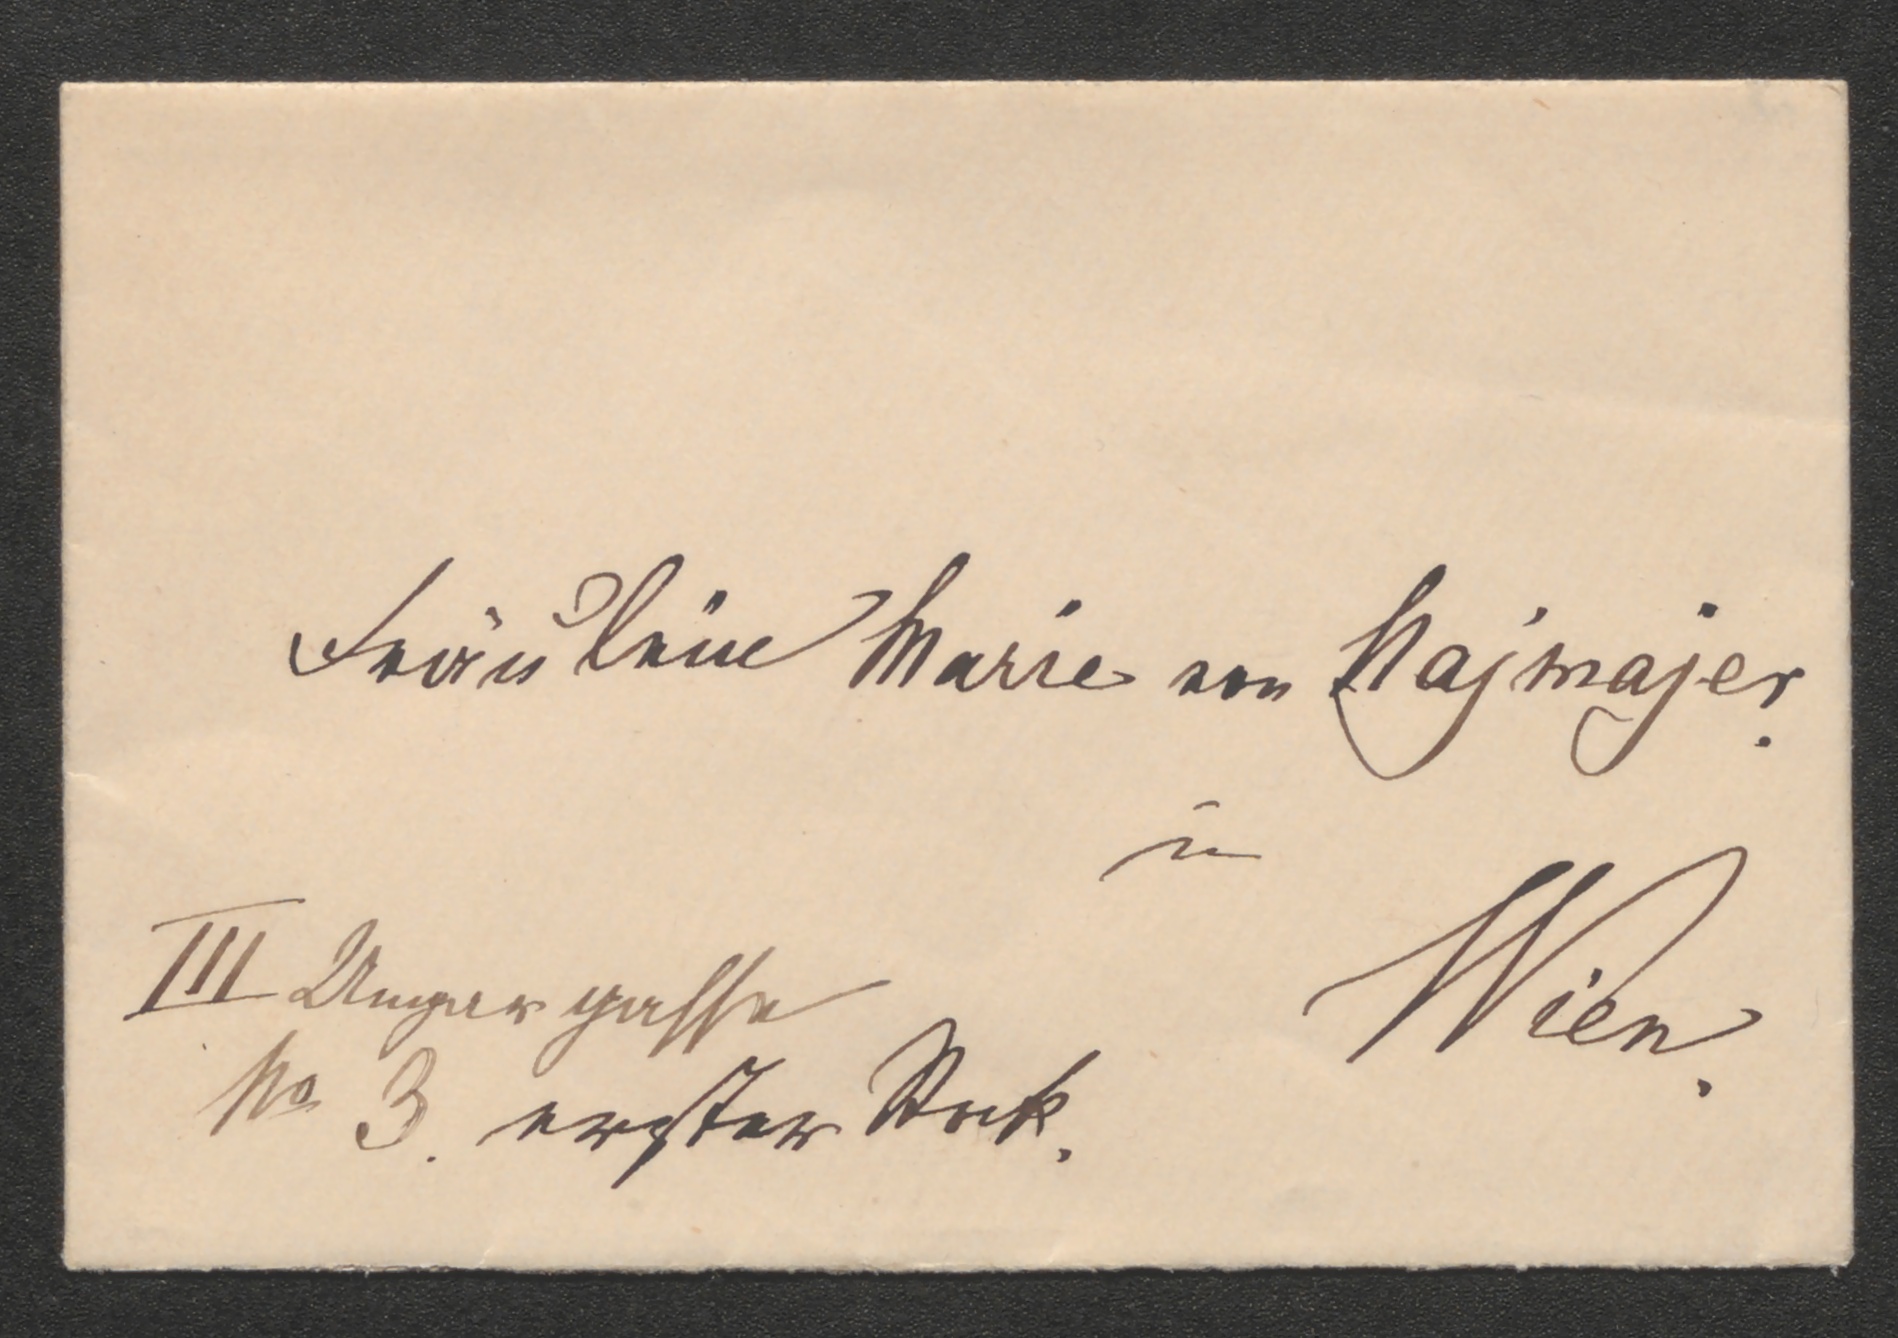 Fräulein Marie von Najmajer.
in
Wien.
III Ungargasse
No 3. erster Stock.